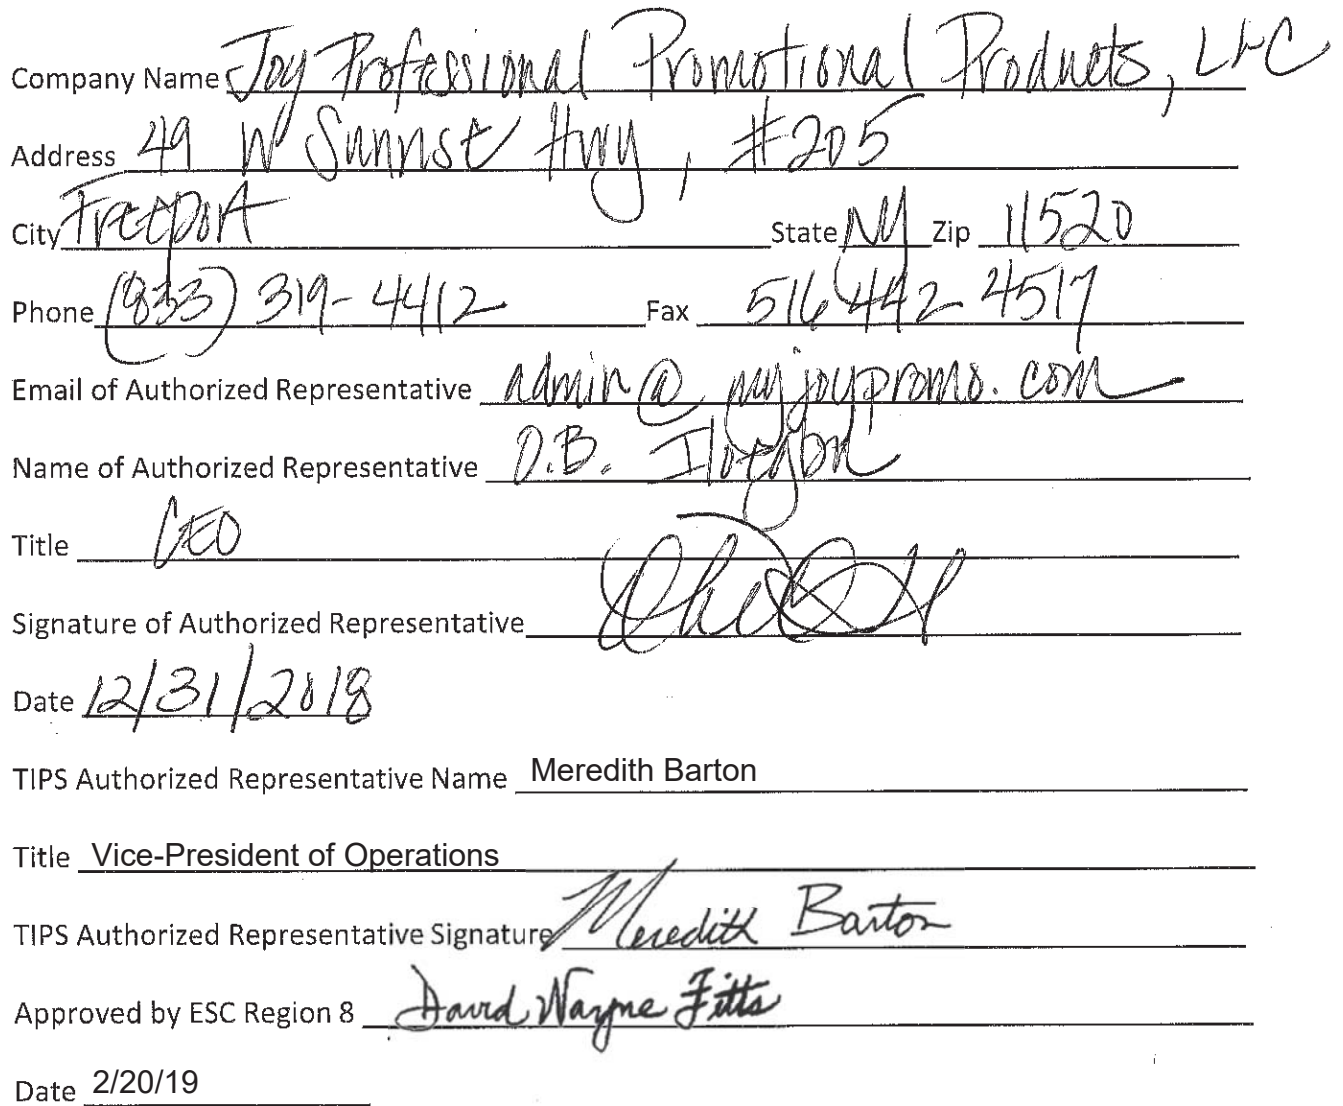 Company Name Joy Professional Promotional Products, LLC
Address 49 W Sunrise Hwy, #205
City Freeport State NY Zip 11520
Phone (833) 319-4412 Fax 516 442 4517
Email of Authorized Representative admin@myjoypromo.com
Name of Authorized Representative D.B.
Title CEO
Signature of Authorized Representative
Date 12/31/2018
TIPS Authorized Representative Name Meredith Barton
Title Vice-President of Operations
TIPS Authorized Representative Signature Meredith Barton
Approved by ESC Region 8 David Wayne Fitts
Date 2/20/19